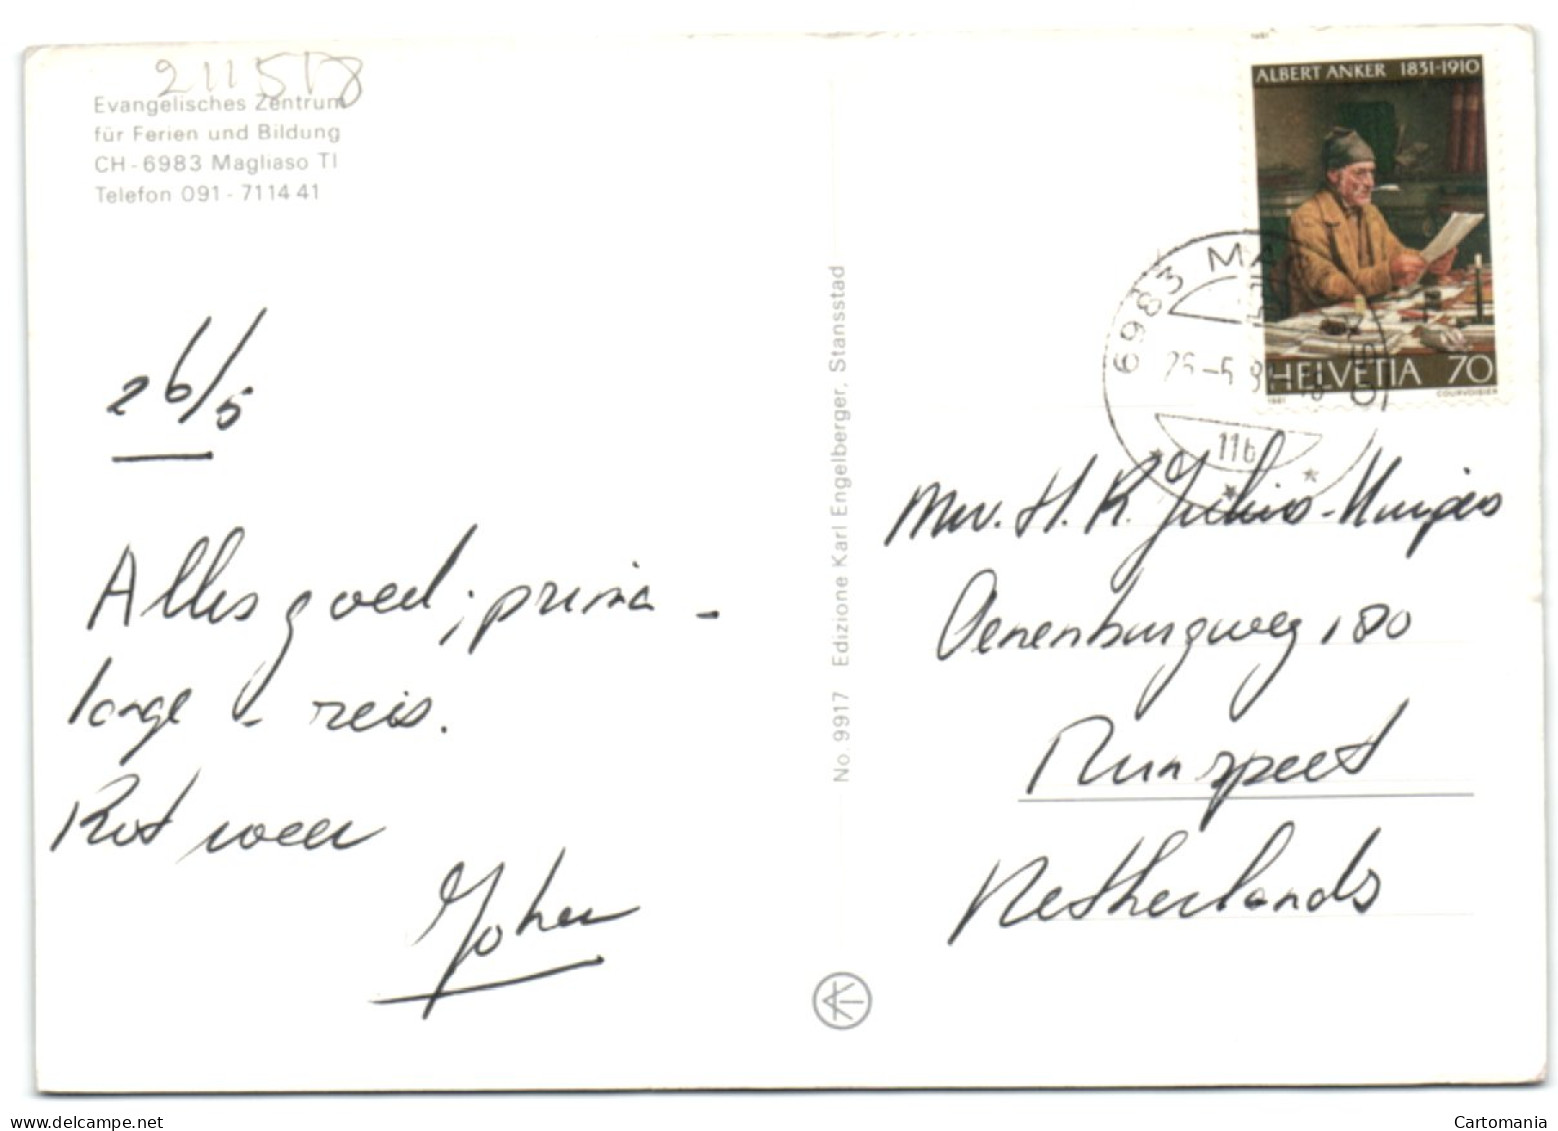 211518
Evangelisches Zentrum
für Ferien und Bildung
CH-6983 Magliaso TI
Telefon 091-71 14 41
26/5
Alles goed; prima -
lange - reis.
weer
Johan
No. 9917 Edizione Karl Engelberger, Stansstad
ALBERT ANKER 1831-1910
HELVETIA 70
1981
COURVOISIER
6983 MAGLIASO
26-5
11b
Mw. H. K. Julius-
Oenenburgweg 180
Nunspeet
Netherlands
www.delcampe.net
Cartomania